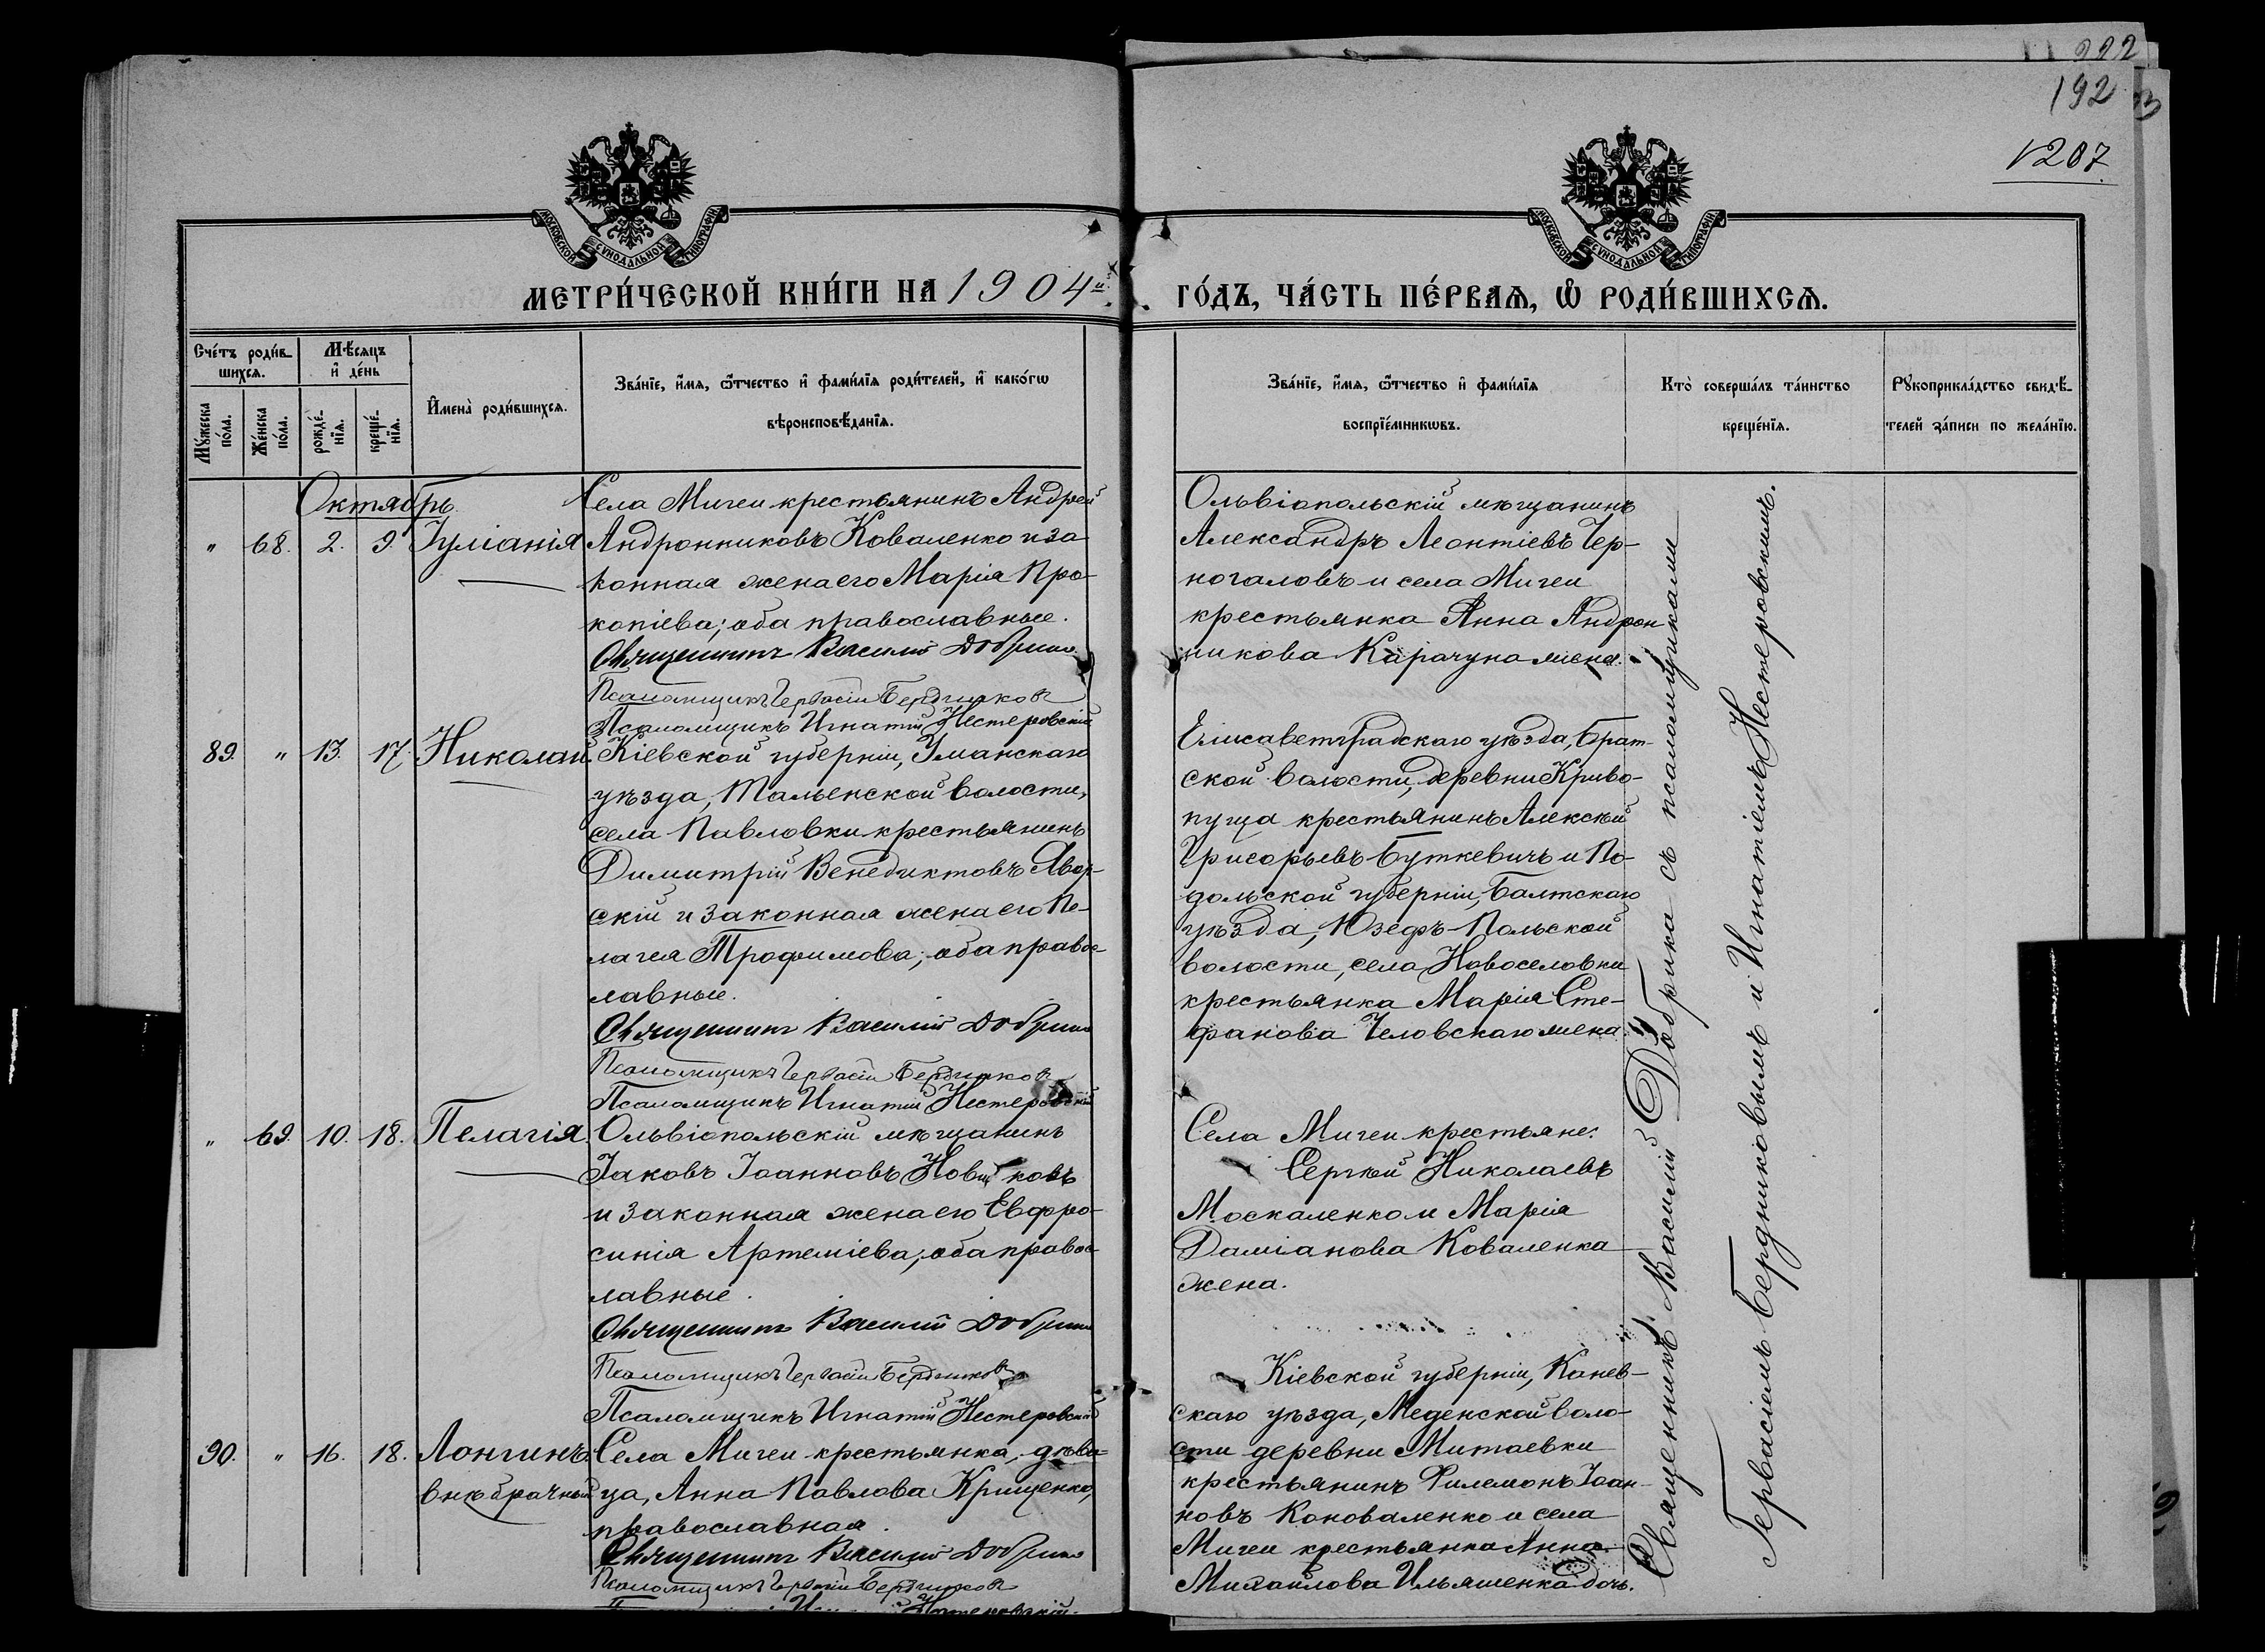 222
192
1207.
МОСКОВСКОЙ СѴНОДАЛЬНОЙ ТИПОГРАФІИ
МОСКОВСКОЙ СѴНОДАЛЬНОЙ ТИПОГРАФІИ
МЕТРИ́ЧЕСКОЙ КНИ́ГИ НА 1904й
ГО́ДЪ, ЧА́СТЬ ПЕ́РВАѦ, Ѽ РОДИ́ВШИХСѦ.
Сче́тъ роди́вшихсѧ.
Мꙋ́жеска по́ла.
Же́нска по́ла.
Мѣ́сѧцъ и҆ де́нь
рожде́нїѧ.
креще́нїѧ.
И҆мена̀ роди́вшихсѧ.
Зва́нїе, и҆́мѧ, ѻ҆́тчество и҆ фами́лїѧ роди́телей, и҆ како́гѡ
вѣроисповѣ́данїѧ.
Зва́нїе, и҆́мѧ, ѻ҆́тчество и҆ фами́лїѧ
воспрїе́мникѡвъ.
Кто̀ соверша́лъ та́инство
креще́нїѧ.
Рꙋкоприкла́дство свидѣ́-
телей за́писи по жела́нїю.
Октябрь.
" 68. 2. 9. Іуліанія
Села Мигеи крестьянинъ Андрей
Андронниковъ Коваленко и за
конная жена его Марія Про-
копіева; оба православные.
Священникъ Василій Добрика
Псаломщикъ Гервасій Бердниковъ
Псаломщикъ Игнатій Нестеровскій
Ольвіопольскій мѣщанинъ
Александръ Леонтіевъ Чер-
ногаловъ и села Мигеи
крестьянка Анна Андрон
никова Карачуна жена.
89. " 13. 17. Николай
Кіевской губерніи, Уманскаго
уѣзда, Тальенской волости,
села Павловки крестьянинъ
Димитрій Венедиктовъ Явор-
скій и законная жена его Пе-
лагея Трофимова; оба правос-
лавные.
Священникъ Василій Добрика
Псаломщикъ Гервасій Бердниковъ
Псаломщикъ Игнатій Нестеровскій
Елисаветградскаго уѣзда, Брат-
ской волости, деревни Криво-
пуща крестьянинъ Алексѣй
Григорьевъ Буткевичъ и По-
дольской губерніи, Балтскаго
уѣзда, Юзефъ-Польской
волости, села Новоселовки
крестьянка Марія Сте-
фанова Человскаго жена
" 69. 10. 18. Пелагія.
Ольвіопольскій мѣщанинъ
Іаковъ Іоанновъ Новиковъ
и законная жена его Евфро-
синія Артеміева; оба правос-
лавные.
Священникъ Василій Добрика
Псаломщикъ Гервасій Бердниковъ
Псаломщикъ Игнатій Нестеровскій
Села Мигеи крестьяне:
Сергѣй Николаевъ
Москаленко и Марія
Даміанова Коваленка
жена.
90. " 16. 18. Лонгинъ.
внѣбрачный
Села Мигеи крестьянка, дѣви=
ца, Анна Павлова Крищенко,
православная.
Священникъ Василій Добрика
Псаломщикъ Гервасій Бердниковъ
Кіевской губерніи, Канев-
скаго уѣзда, Меденской воло-
сти деревни Митаевки
крестьянинъ Филемонъ Іоан-
новъ Коноваленко и села
Мигеи крестьянка Анна
Михайлова Ильяшенка дочь.
Священникъ Василій Добрика съ псаломщиками
Гервасіемъ Бердниковымъ и Игнатіемъ Нестеровскимъ.